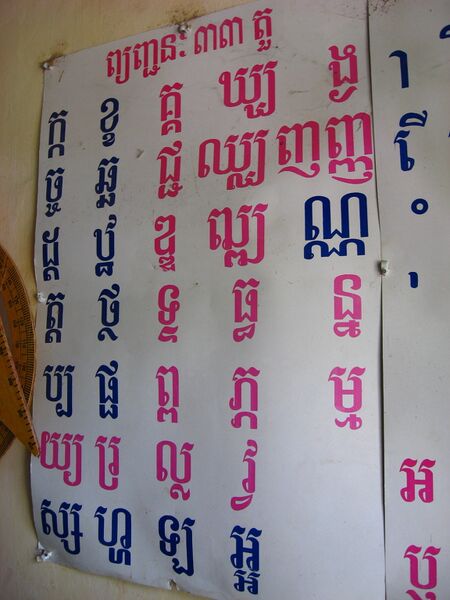 ព្យញ្ជនៈ ៣៣ តួ
ក្ក ខ្ខ គ្គ ឃ្ឃ ង្ង
ច្ច ឆ្ឆ ជ្ជ ឈ្ឈ ញញ្ញ
ដ្ដ ឋ្ឋ ឌ្ឌ ឍ្ឍ ណ្ណ
ត្ត ថ្ថ ទ្ទ ធ្ធ ន្ន
ប្ប ផ្ផ ព្ព ភ្ភ ម្ម
យ្យ រ្រ ល្ល វ្វ
ស្ស ហ្ហ ឡ្ឡ អ្អ
អ